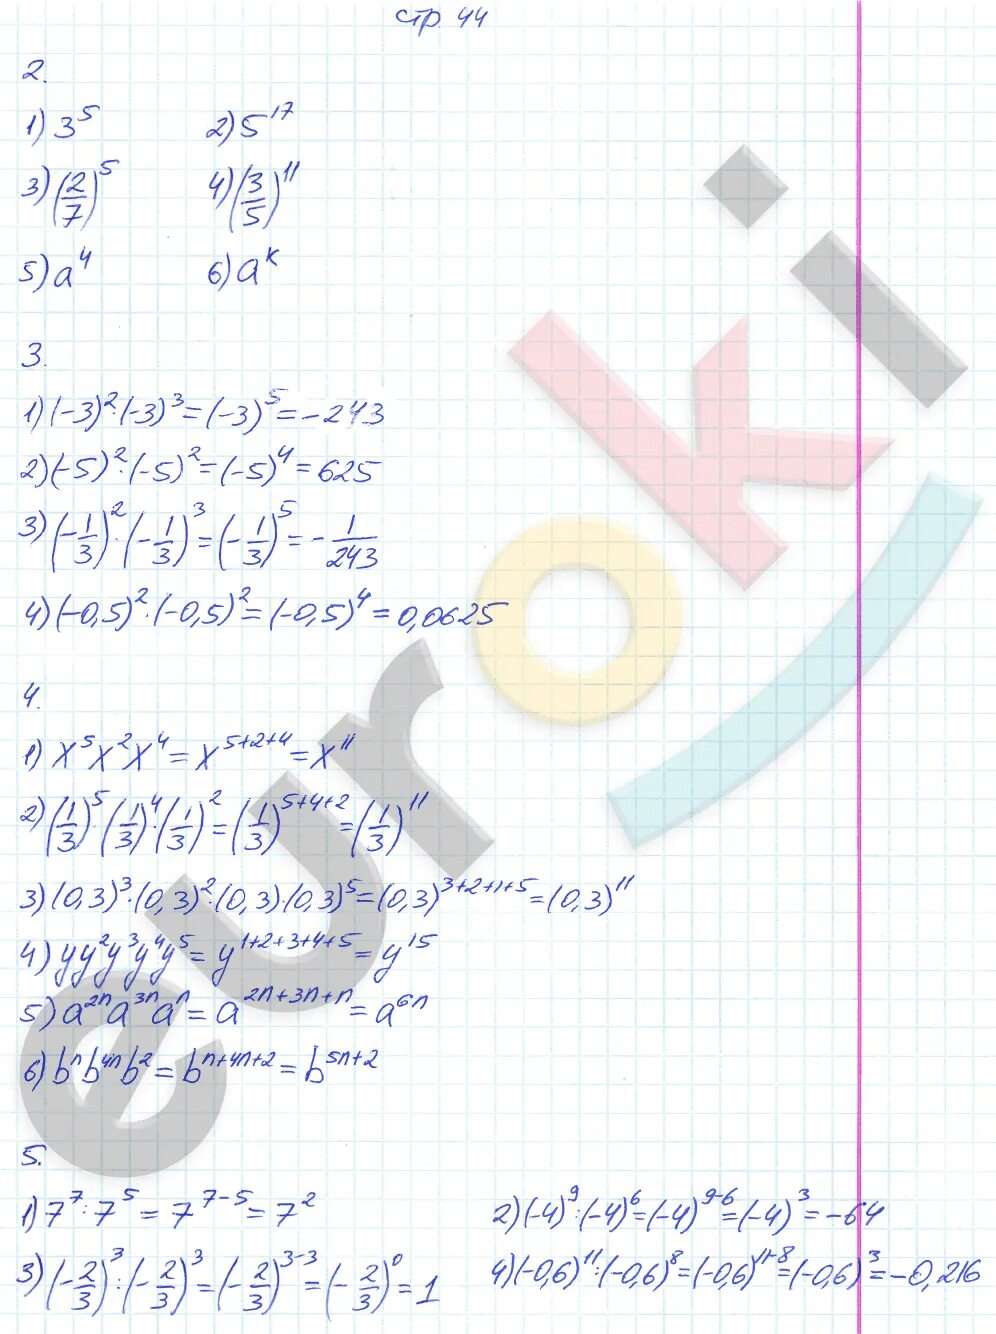 стр. 44
2.
1) 3⁵ 2) 5¹⁷
3) (2/7)⁵ 4) (3/5)¹¹
5) a⁴ 6) aᵏ
3.
1) (-3)²·(-3)³=(-3)⁵=-243
2) (-5)²·(-5)²=(-5)⁴=625
3) (-1/3)²·(-1/3)³=(-1/3)⁵=-1/243
4) (-0,5)²·(-0,5)²=(-0,5)⁴=0,0625
4.
1) x⁵x²x⁴=x⁵⁺²⁺⁴=x¹¹
2) (1/3)⁵·(1/3)⁴·(1/3)²=(1/3)⁵⁺⁴⁺²=(1/3)¹¹
3) (0,3)³·(0,3)²·(0,3)·(0,3)⁵=(0,3)³⁺²⁺¹⁺⁵=(0,3)¹¹
4) yy²y³y⁴y⁵=y¹⁺²⁺³⁺⁴⁺⁵=y¹⁵
5) a²ⁿa³ⁿaⁿ=a²ⁿ⁺³ⁿ⁺ⁿ=a⁶ⁿ
6) bⁿb⁴ⁿb²=bⁿ⁺⁴ⁿ⁺²=b⁵ⁿ⁺²
5.
1) 7⁷:7⁵=7⁷⁻⁵=7² 2) (-4)⁹:(-4)⁶=(-4)⁹⁻⁶=(-4)³=-64
3) (-2/3)³:(-2/3)³=(-2/3)³⁻³=(-2/3)⁰=1 4) (-0,6)¹¹:(-0,6)⁸=(-0,6)¹¹⁻⁸=(-0,6)³=-0,216
euroki